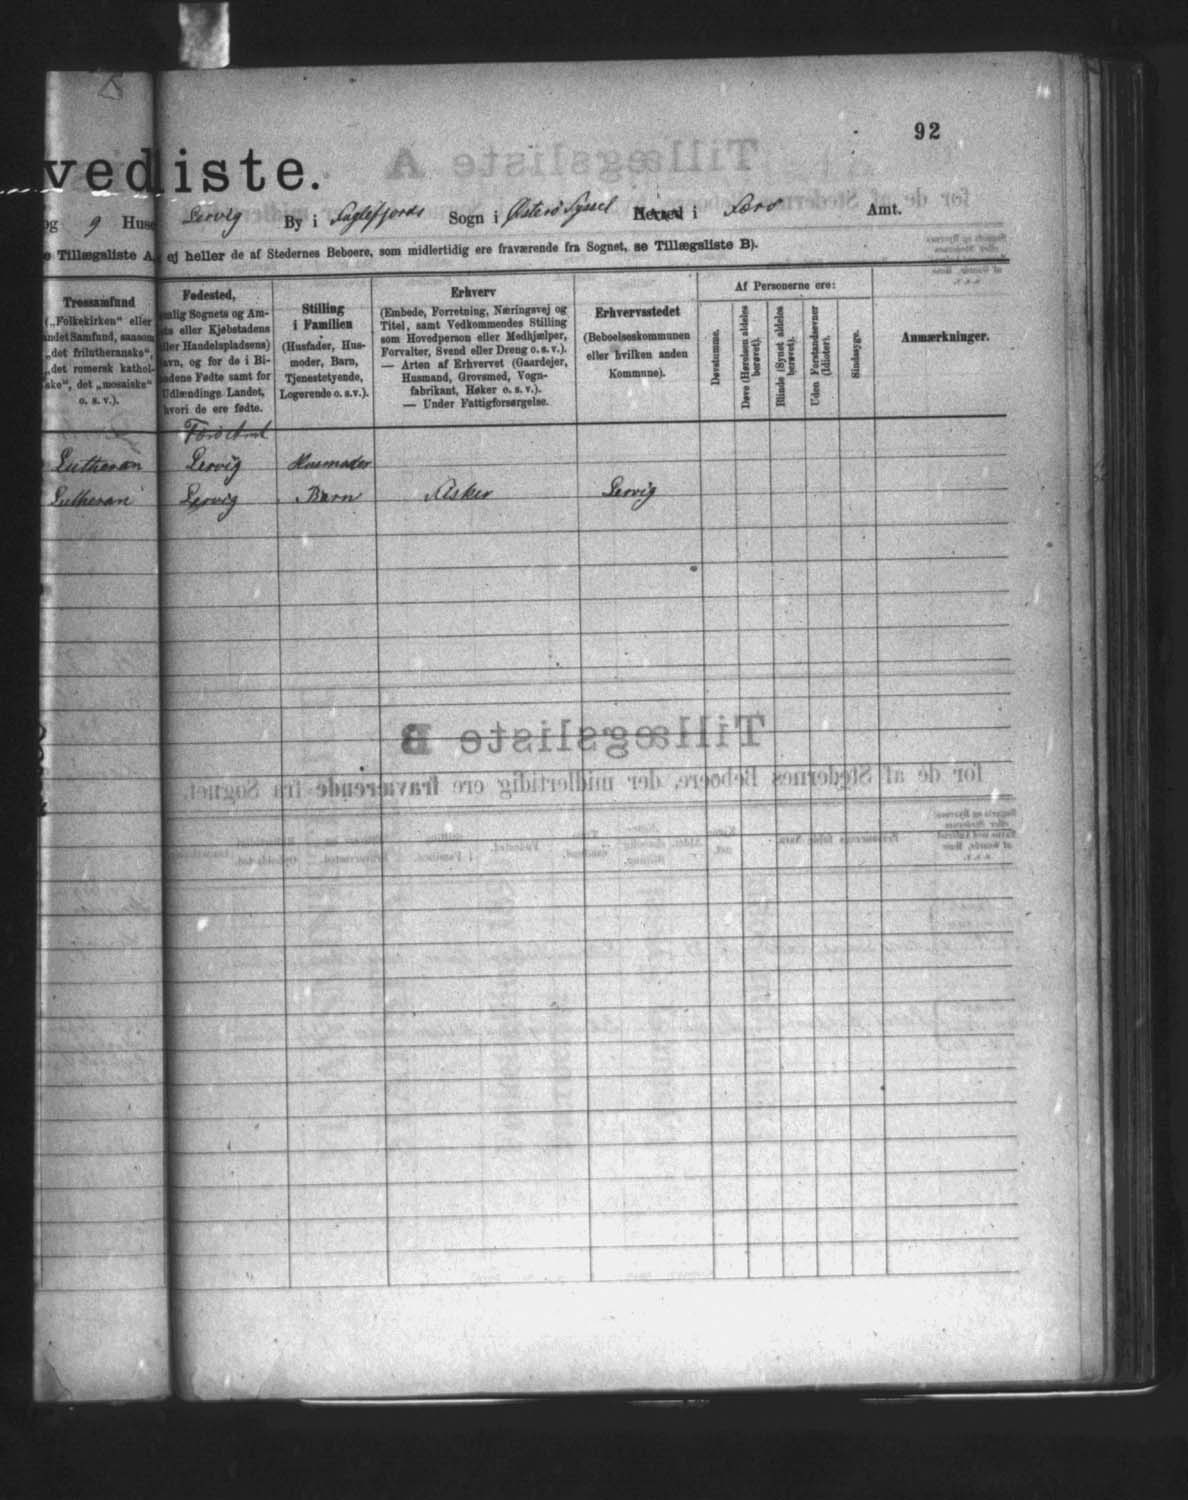 92
vedliste.
og 9 Huse Lervig By i Fuglefjords Sogn i Østerø Syssel Herred i Færø Amt.
e Tillægsliste A, ej heller de af Stedernes Beboere, som midlertidig ere fraværende fra Sognet, se Tillægsliste B).
Trossamfund
(„Folkekirken“ eller
andet Samfund, saasom
„det frilutheranske“,
„det romersk kathol-
ske“, det „mosaiske“
o. s. v.).
Fødested,
nemlig Sognets og Am-
ts eller Kjøbstadens
eller Handelspladsens)
Navn, og for de i Bi-
landene Fødte samt for
Udlændinge Landet,
hvori de ere fødte.
Stilling
i Familien
(Husfader, Hus-
moder, Barn,
Tjenestetyende,
Logerende o. s. v.).
Erhverv
(Embede, Forretning, Næringsvej og
Titel, samt Vedkommendes Stilling
som Hovedperson eller Medhjælper,
Forvalter, Svend eller Dreng o. s. v.).
— Arten af Erhvervet (Gaardejer,
Husmand, Grovsmed, Vogn-
fabrikant, Høker o. s. v.).
— Under Fattigforsørgelse.
Erhvervsstedet
(Beboelseskommunen
eller hvilken anden
Kommune).
Af Personerne ere:
Døvstumme.
Døve (Hørelsen aldeles
berøvet).
Blinde (Synet aldeles
berøvet).
Uden Forstandsevner
(Idioter).
Sindssyge.
Anmærkninger.
Færø Amt
Lutheran Lervig Husmoder
Lutheran Lervig Barn Fisker Lervig